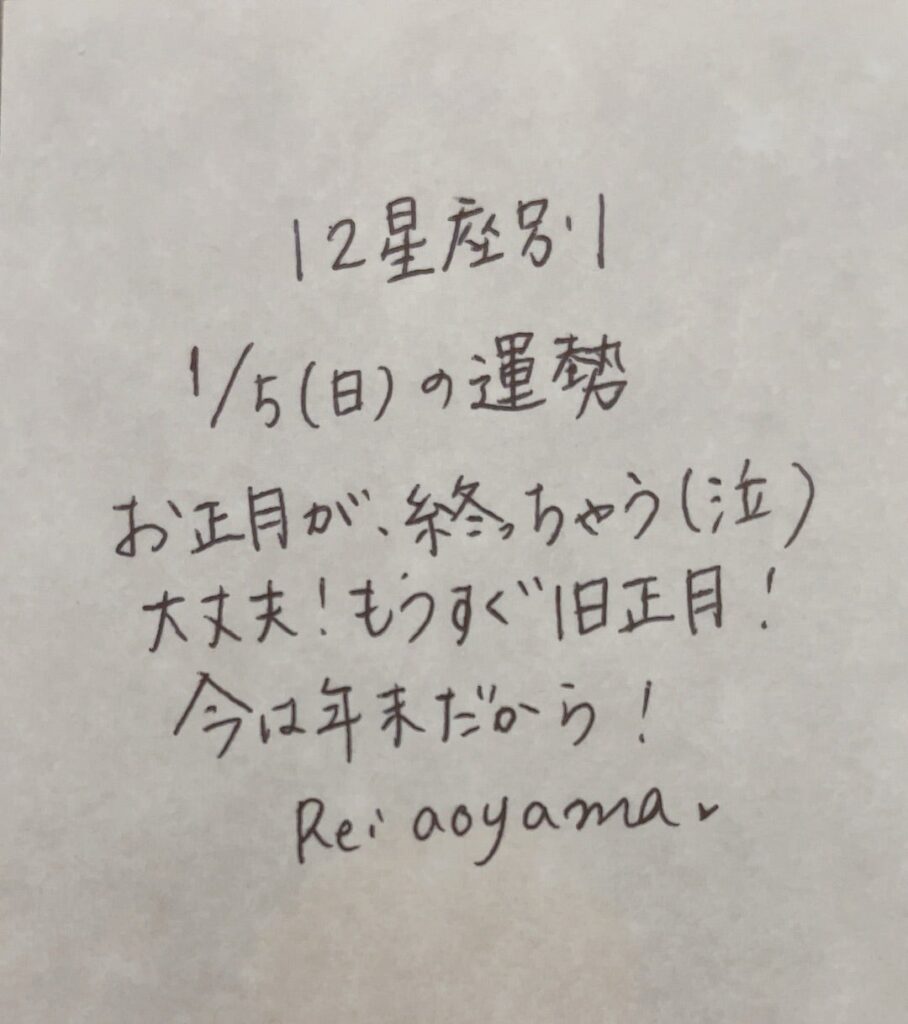 12星座別
1/5(日)の運勢
お正月が、終っちゃう(泣)
大丈夫!もうすぐ旧正月!
今は年末だから!
Rei aoyama